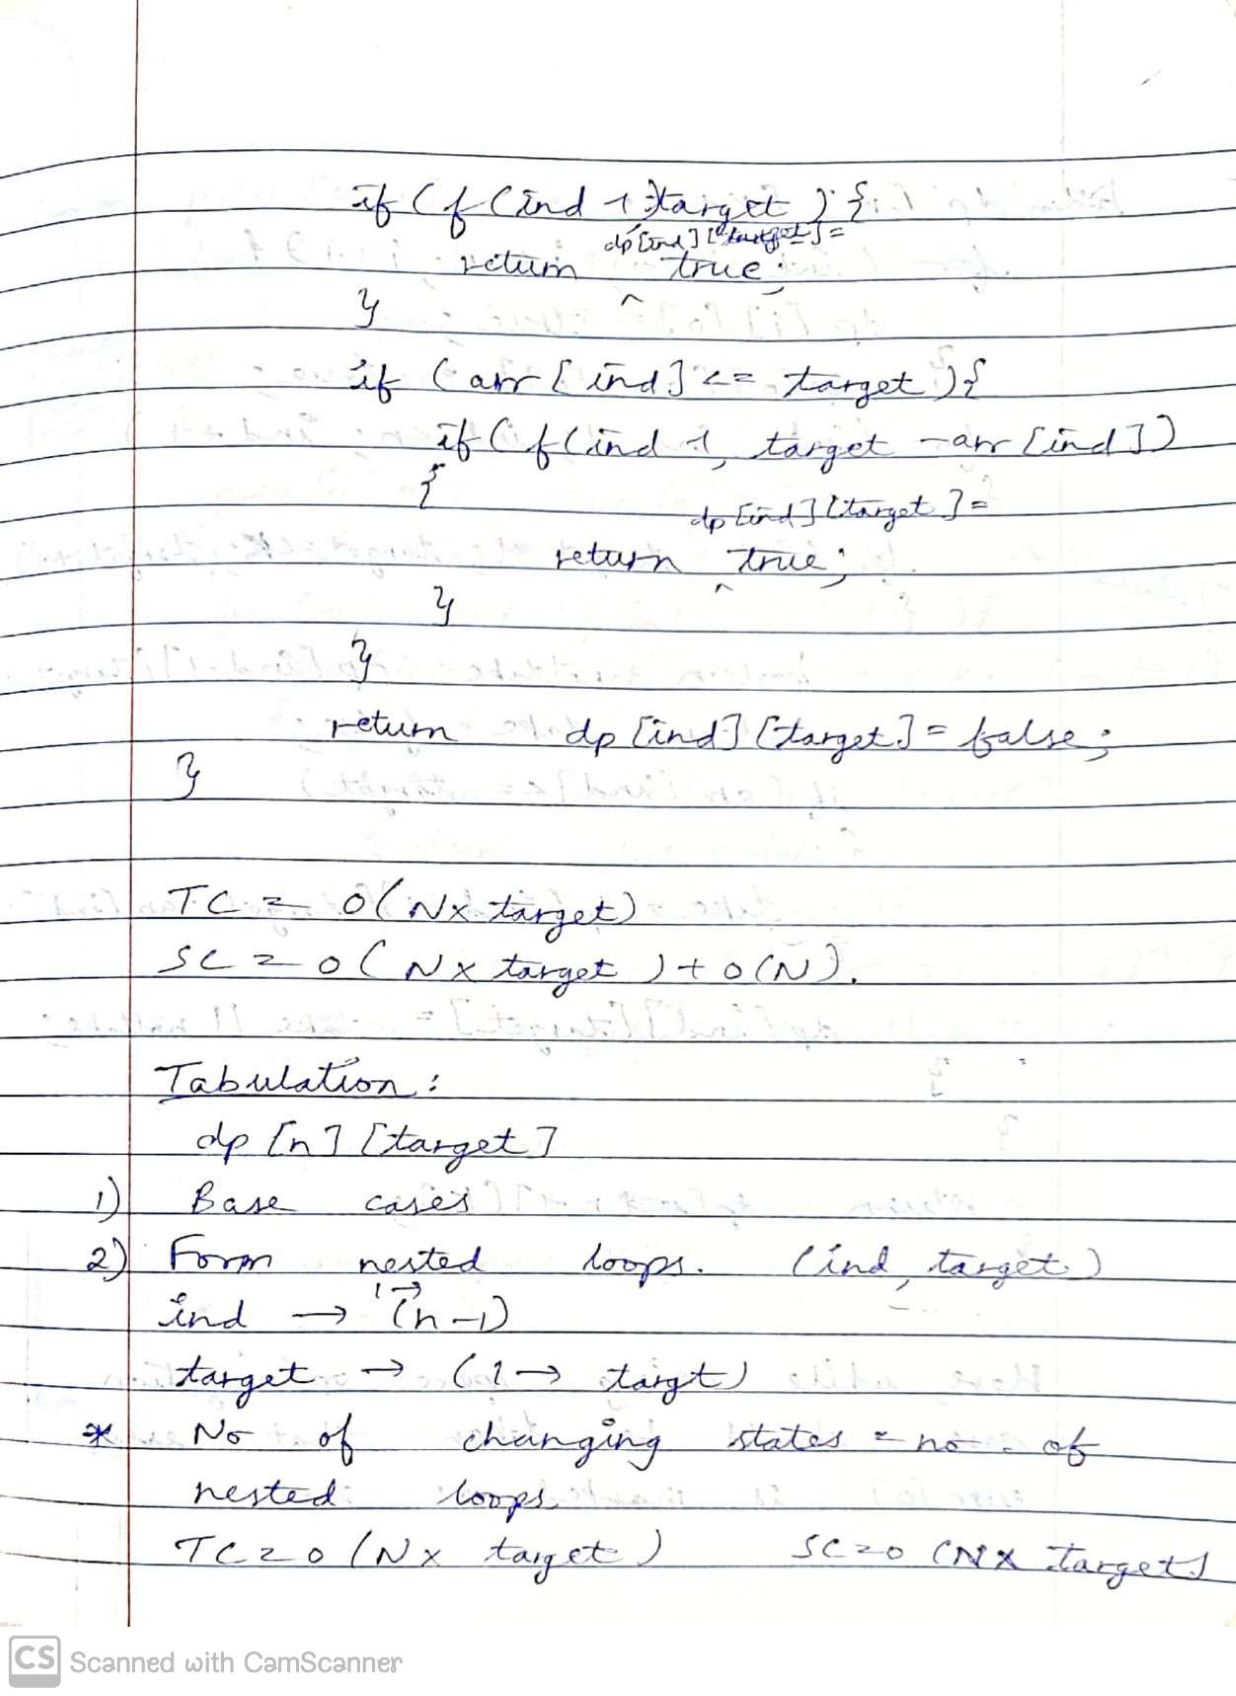 if (f(ind-1, target)){
dp[ind][target]=
return true;
}
if (arr[ind] <= target){
if (f(ind-1, target -arr[ind])
{
dp[ind][target]=
return true;
}
}
return dp[ind][target] = false;
}
TC = O(N x target)
SC = O(N x target) + O(N).
Tabulation:
dp[n][target]
1) Base cases
2) Form nested loops. (ind, target)
1→
ind → (n-1)
target → (1 → targt)
* No of changing states = no. of
nested loops.
TC = O(N x target) SC = O(N x target)
CS Scanned with CamScanner